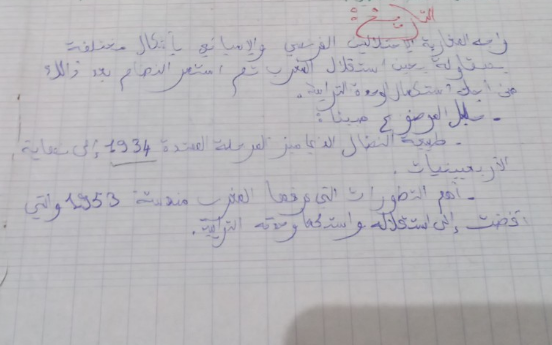 واجه المغاربة الاستلات الفرنسي والاسباني بأشكال مختلفة
استقلال المغرب ثم استمر النضال بعد ذلك
من أجل استكمال الوحدة الترابية.
- حلل الموضوع مبينا:
- طبيعة النضال الذي ميز المرحلة الممتدة 1934 إلى نهاية
الأربعينيات.
- أهم التطورات التي عرفها المغرب منذ سنة 1953 والتي
أفضت إلى استقلاله واستكمال وحدته الترابية.